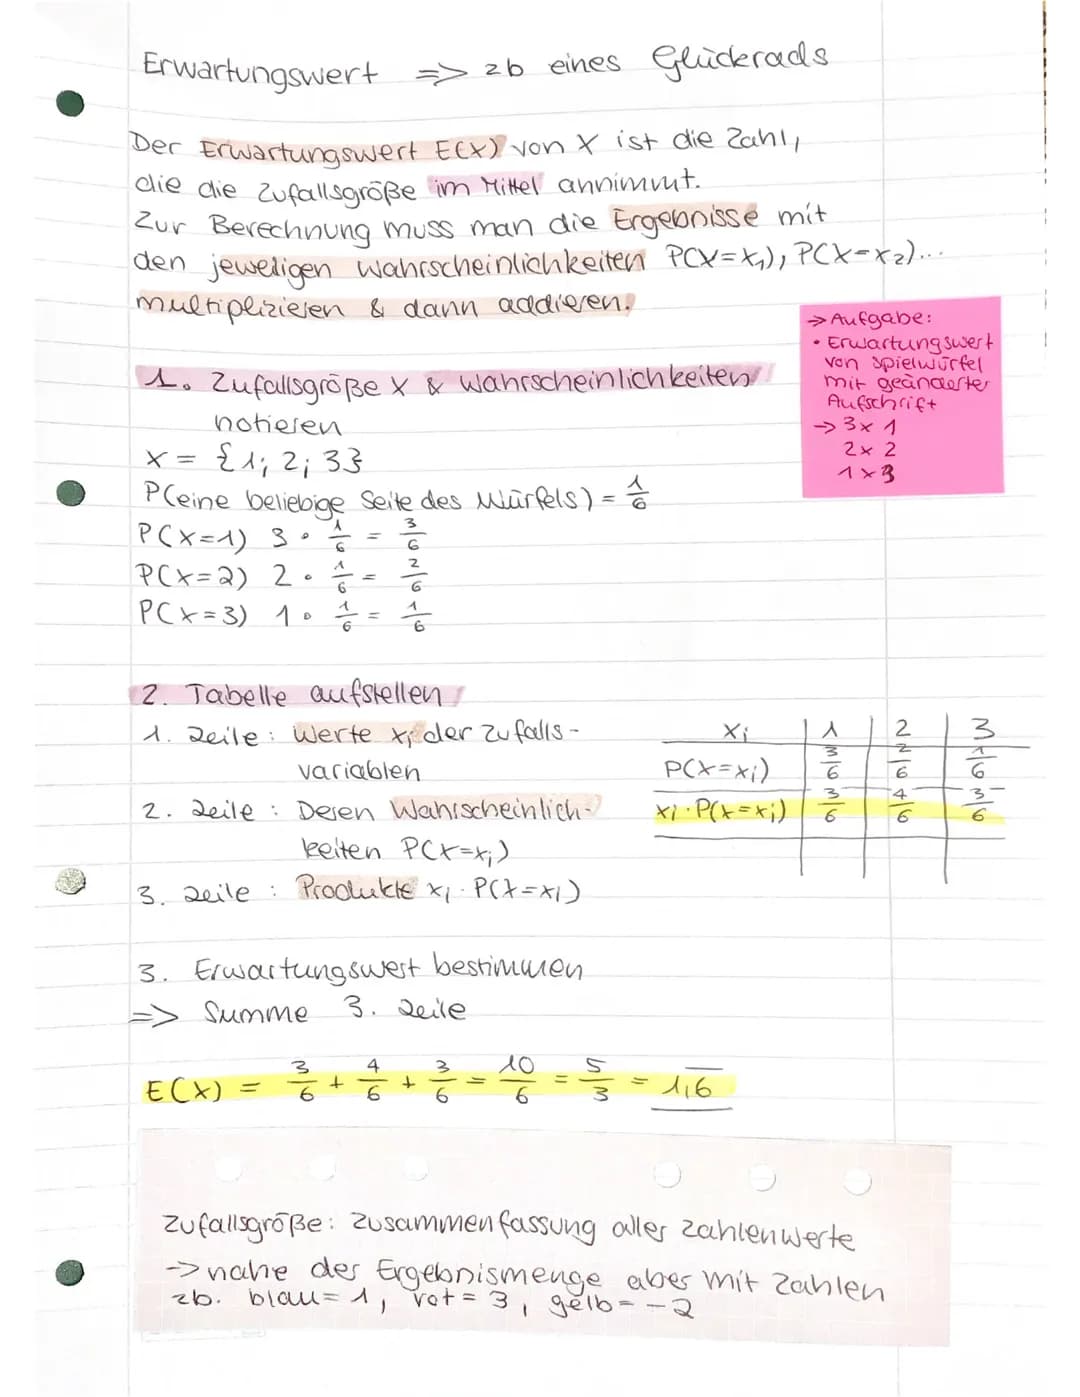 Erwartungswert => zb eines Glückrads
Der Erwartungswert E(X) von X ist die Zahl,
die die Zufallsgröße im Mittel annimmt.
Zur Berechnung muss man die Ergebnisse mit
den jeweiligen Wahrscheinlichkeiten P(X=x₁), P(X=x₂)...
multiplizieren & dann addieren.
→ Aufgabe:
• Erwartungswert
von Spielwürfel
mit geänderter
Aufschrift
→ 3x 1
2x 2
1x3
1. Zufallsgröße X & Wahrscheinlichkeiten
notieren
X = {1; 2; 3}
P(eine beliebige Seite des Würfels) = 1/6
P(X=1) 3 · 1/6 = 3/6
P(X=2) 2 · 1/6 = 2/6
P(X=3) 1 · 1/6 = 1/6
2. Tabelle aufstellen
1. Zeile: Werte xᵢ der Zufalls-
variablen
2. Zeile: Deren Wahrscheinlich-
keiten P(X=xᵢ)
3. Zeile: Produkte xᵢ · P(X=xᵢ)
xᵢ 1 2 3
P(X=xᵢ) 3/6 2/6 1/6
xᵢ · P(X=xᵢ) 3/6 4/6 3/6
3. Erwartungswert bestimmen
=> Summe 3. Zeile
E(X) = 3/6 + 4/6 + 3/6 = 10/6 = 5/3 = 1,6̅
Zufallsgröße: Zusammenfassung aller Zahlenwerte
-> nahe der Ergebnismenge aber mit Zahlen
zb. blau=1, rot=3, gelb=-2